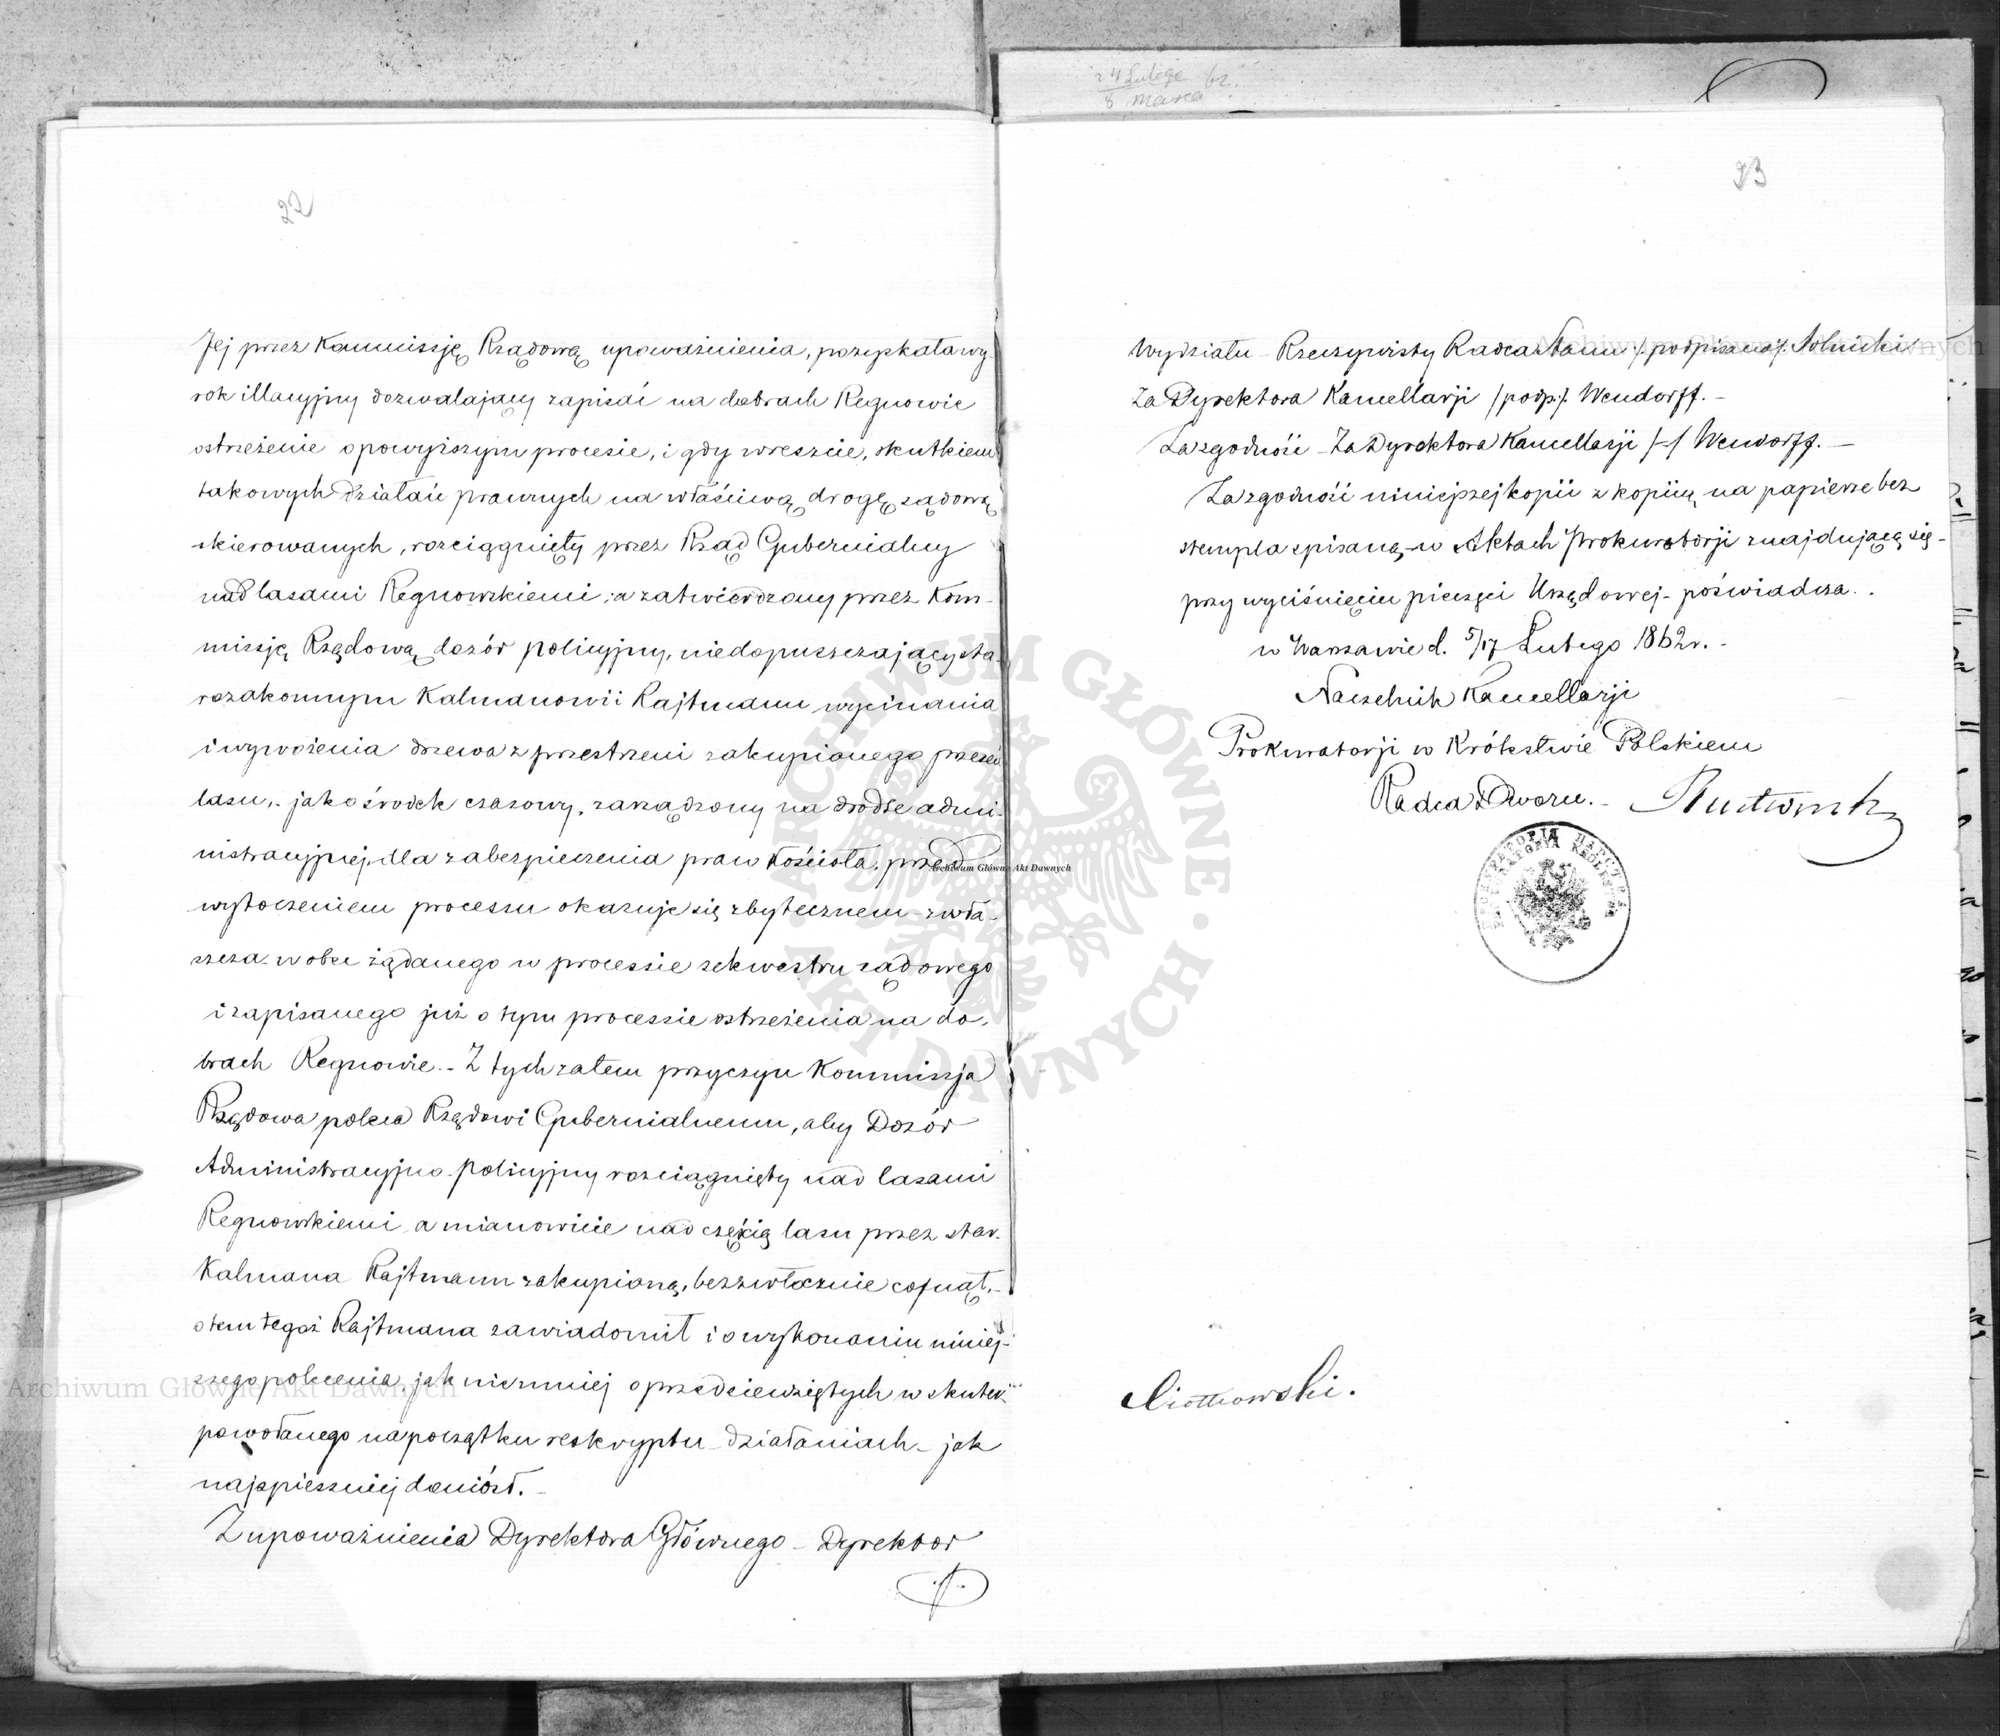 22
Jej przez Kommissję Rządową upoważnienia, pozyskała wy-
rok illacyjny dozwalający zapisać na dobrach Regnowie
ostrzeżenie o powyższym procesie, i gdy wreszcie, skutkiem
takowych działań prawnych na właściwą drogę sądową
skierowanych, rozciągnięty przez Rząd Gubernialny
nad lasami Regnowskiemi, a zatwierdzony przez Kom-
missję Rządową dozór policyjny, niedopuszczający sta-
rozakonnym Kalmanowi Rajtmann wycinania
i wywożenia drzewa z przestrzeni zakupionego przezeń
lasu, - jako środek czasowy, zarządzony na drodze admi-
nistracyjnej, dla zabezpieczenia praw Kościoła, przed
wytoczeniem processu okazuje się zbytecznem - zwła-
szcza wobec żądanego w processie sekwestru sądowego
i zapisanego już o tym processie ostrzeżenia na do-
brach Regnowie. - Z tych zatem przyczyn Kommissja
Rządowa poleca Rządowi Gubernialnemu, aby Dozór
Administracyjno-policyjny rozciągnięty nad lasami
Regnowskiemi a mianowicie nad częścią lasu przez star.
Kalmana Rajtmann zakupioną, bezzwłocznie cofnął, -
o tem tegoż Rajtmana zawiadomił i o wykonaniu niniej-
szego polecenia, jak niemniej o przedsięwziętych w skutek
powołanego na początku reskryptu - działaniach - jak
najspieszniej doniósł. -
Z upoważnienia Dyrektora Głównego - Dyrektor
24 Lutego 62.
8 Marca
23
Wydziału - Rzeczywisty Radca Stanu /podpisano/
Za Dyrektora Kancellarji /podp:/ Wendorff. -
Za zgodność - Za Dyrektora Kancellarji /-/ Wendorff. -
Za zgodność niniejszej kopii z kopiią na papierze bez
stempla spisaną - w Aktach Prokuratorji znajdującą się -
przy wyciśnięciu pieczęci Urzędowej - poświadcza.
w Warszawie d. 5/17 Lutego 1862 r. -
Naczelnik Kancellarji
Prokuratorji w Królestwie Polskiem
Radca Dworu. -
Archiwum Główne Akt Dawnych
Archiwum Główne Akt Dawnych
Archiwum Główne Akt Dawnych
ARCHIWUM GŁÓWNE
· AKT DAWNYCH ·